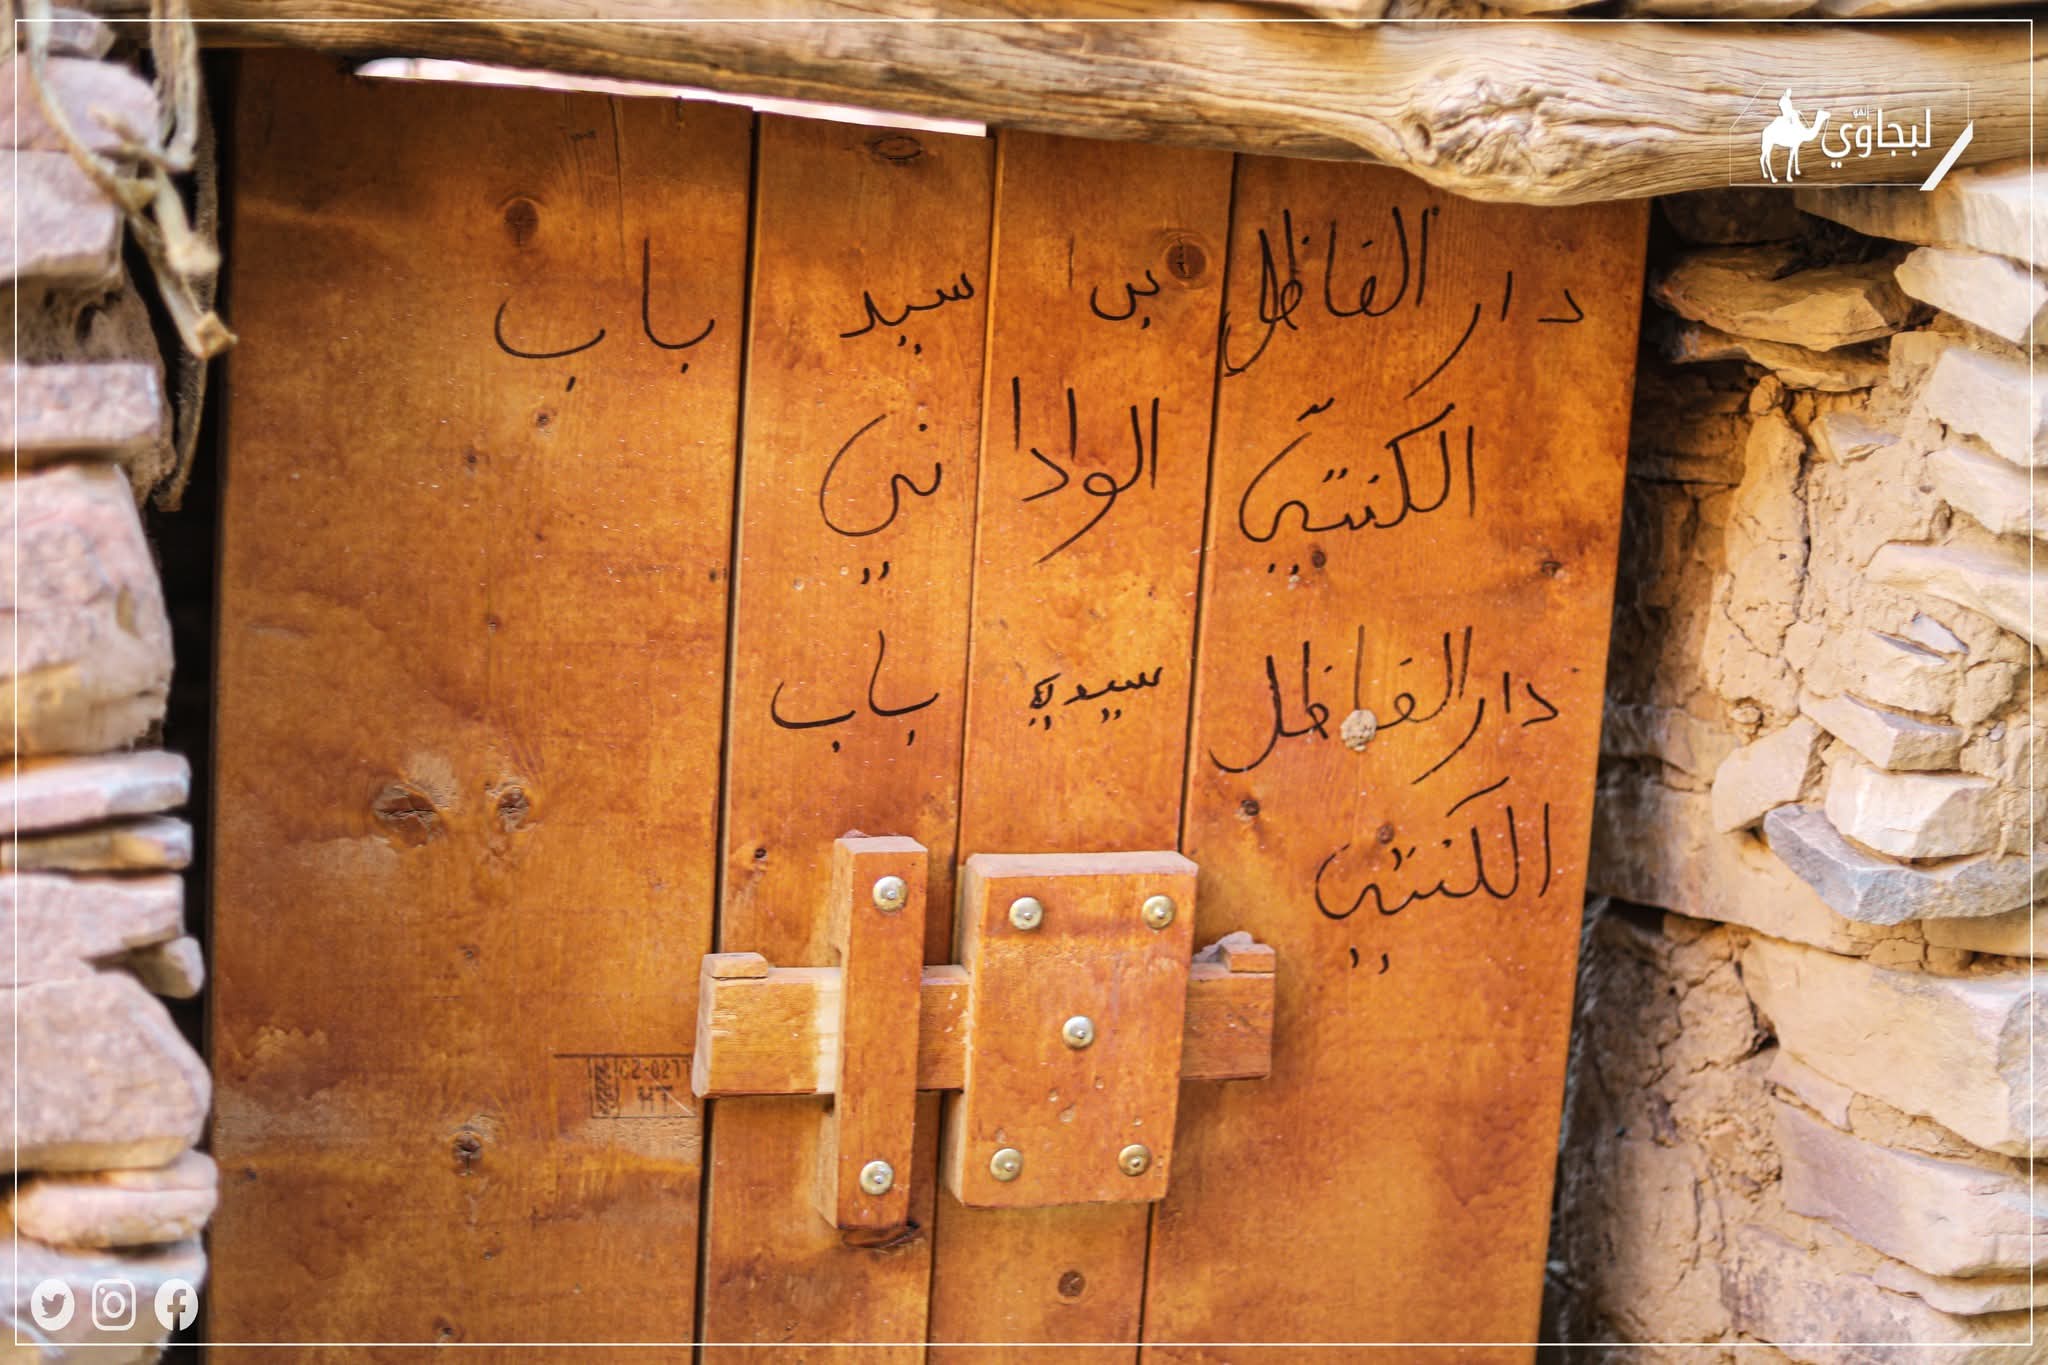 لبجاوي
دار الفاظل بن سيد باب
الكنتيّ الواداني
دار الفاظل سيدي باب
الكنتي
CZ-0277
HT